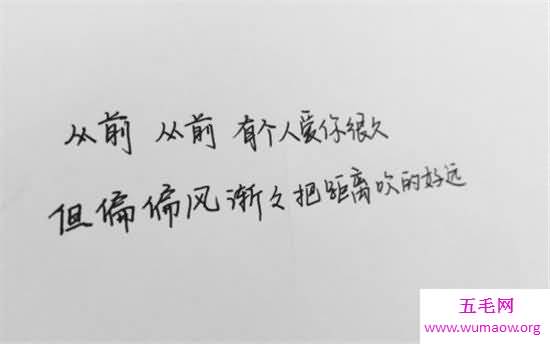 从前 从前 有个人爱你很久
但偏偏风渐々把距离吹的好远
五毛网
www.wumaow.org